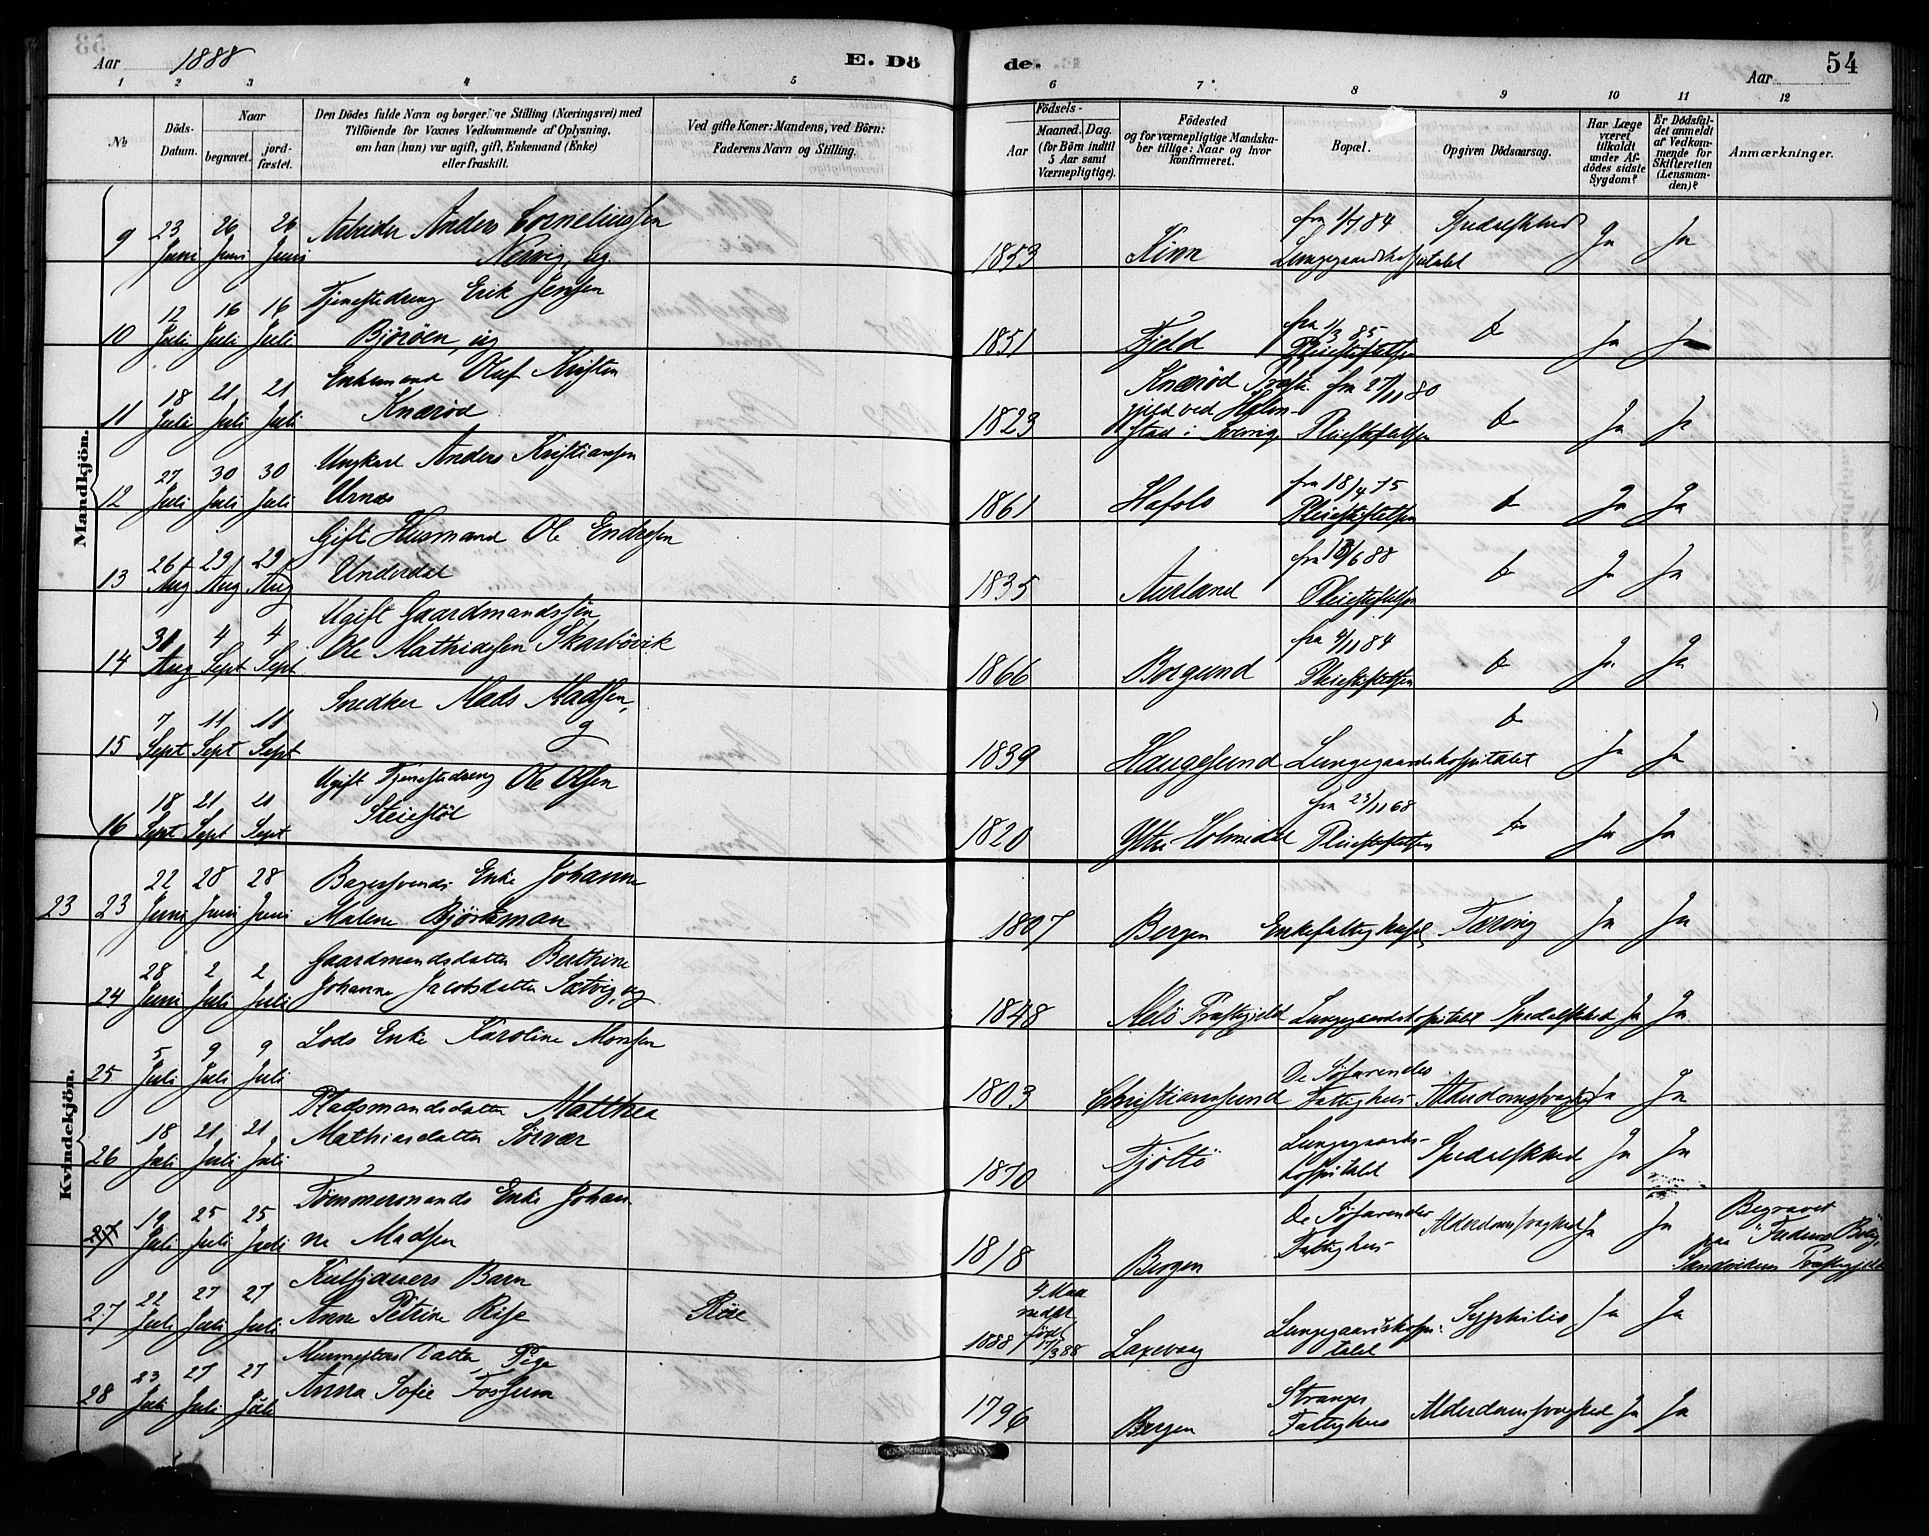 Aar 1888 E. Döde. Aar 54
1 2 3 4 5 6 7 8 9 10 11 12
No
Döds-Datum.
Naar begravet. jordfæstet.
Den Dödes fulde Navn og borgerlige Stilling (Næringsvei) med
Tilföiende for Voxnes Vedkommende af Oplysning,
om han (hun) var ugift, gift, Enkemand (Enke)
eller fraskilt.
Ved gifte Koner: Mandens, ved Börn:
Faderens Navn og Stilling.
Födsels-
Aar Maaned. Dag.
(for Börn indtil
5 Aar samt
Værnepligtige).
Födested
og for værnepligtige Mandska-
ber tillige: Naar og hvor
konfirmeret.
Bopæl.
Opgiven Dödsaarsag.
Har Læge
været
tilkaldt
under Af-
dödes sidste
Sygdom?
Er Dödsfal-
det anmeldt
af Vedkom-
mende for
Skifteretten
(Lensman-
den)?
Anmærkninger.
Mandkjön.
9 23 Juni 26 Juni 26 Juni Arbeider Anders Corneliussen
Nervig, ug 1853 Kinn fra 1/1 84 Lungegaardshospitalet Spedalskhed Ja Ja
10 12 Juli 16 Juli 16 Juli Tjenestedreng Erik Jensen
Björöen, ug 1851 Fjeld fra 1/3 85 Pleiestiftelsen do Ja Ja
11 18 Juli 21 Juli 21 Juli Enkemand Oluf Kristen
Knæröd 1823 Knæröd Præste-
gjeld ved Halm-
stad i Sverig fra 27/11 80 Pleiestiftelsen do Ja Ja
12 27 Juli 30 Juli 30 Juli Ungkarl Anders Kristiansen
Urnæs 1861 Hafslo fra 18/4 75 Pleiestiftelsen do Ja Ja
13 26 Aug 29 Aug 29 Aug Gift Husmand Ole Endresen
Underdal 1835 Aurland fra 13/6 88 Pleiestiftelsen do Ja Ja
14 31 Aug 4 Sept 4 Sept Ugift Gaardmandssön
Ole Mathiassen Skarbövik 1866 Borgund fra 4/11 84 Pleiestiftelsen do Ja Ja
15 7 Sept 11 Sept 11 Sept Snedker Mads Madsen,
g 1839 Haugesund Lungegaardshospitalet do Ja Ja
16 18 Sept 21 Sept 21 Sept Ugift Tjenestedreng Ole Olsen
Steiestöl 1820 Ytre Holmedal fra 23/11 68 Pleiestiftelsen do Ja Ja
Kvindekjön.
23 23 22 Juni 28 Juni 28 Juni Bagersvends Enke Johanne
Malene Björkman 1807 Bergen Enkefattighuset Tæring Ja Ja
24 28 Juni 2 Juli 2 Juli Gaardmandsdatter Berthine
Johanne Jacobsdatter Sætvig, ug 1848 Melö Præstegjeld Lungegaardshospitalet Spedalskhed Ja Ja
25 5 Juli 9 Juli 9 Juli Lods Enke Karoline Monsen
1803 Christianssund De Söfarendes
Fattighus Alderdomssvaghed Ja Ja
26 18 Juli 21 Juli 21 Juli Pladsmandsdatter Matthea
Mathiasdatter Sörvær 1870 Tjöttö Lungegaards-
hospitalet Spedalskhed Ja Ja
27 19 Juli 25 Juli 25 Juli Tömmermands Enke Johan
ne Madsen 1818 Bergen De Söfarendes
Fattighus Alderdomssvaghed Ja Ja Begravet
paa "Fredens Bolig"
Sandvikens Præstegjeld
27 22 Juli 27 Juli 27 Juli Kulhjauers Barn
Anne Petrine Röse Röse 1888 4 Maa
neder
födt
17/3 88 Laxevaag Lungegaardshospi-
talet Syphilis Ja Ja
28 23 Juli 27 Juli 27 Juli Murmesters Datter, Pige
Anna Sofie Fossum 1796 Bergen Stranges
Fattighus Alderdomssvaghed Ja Ja